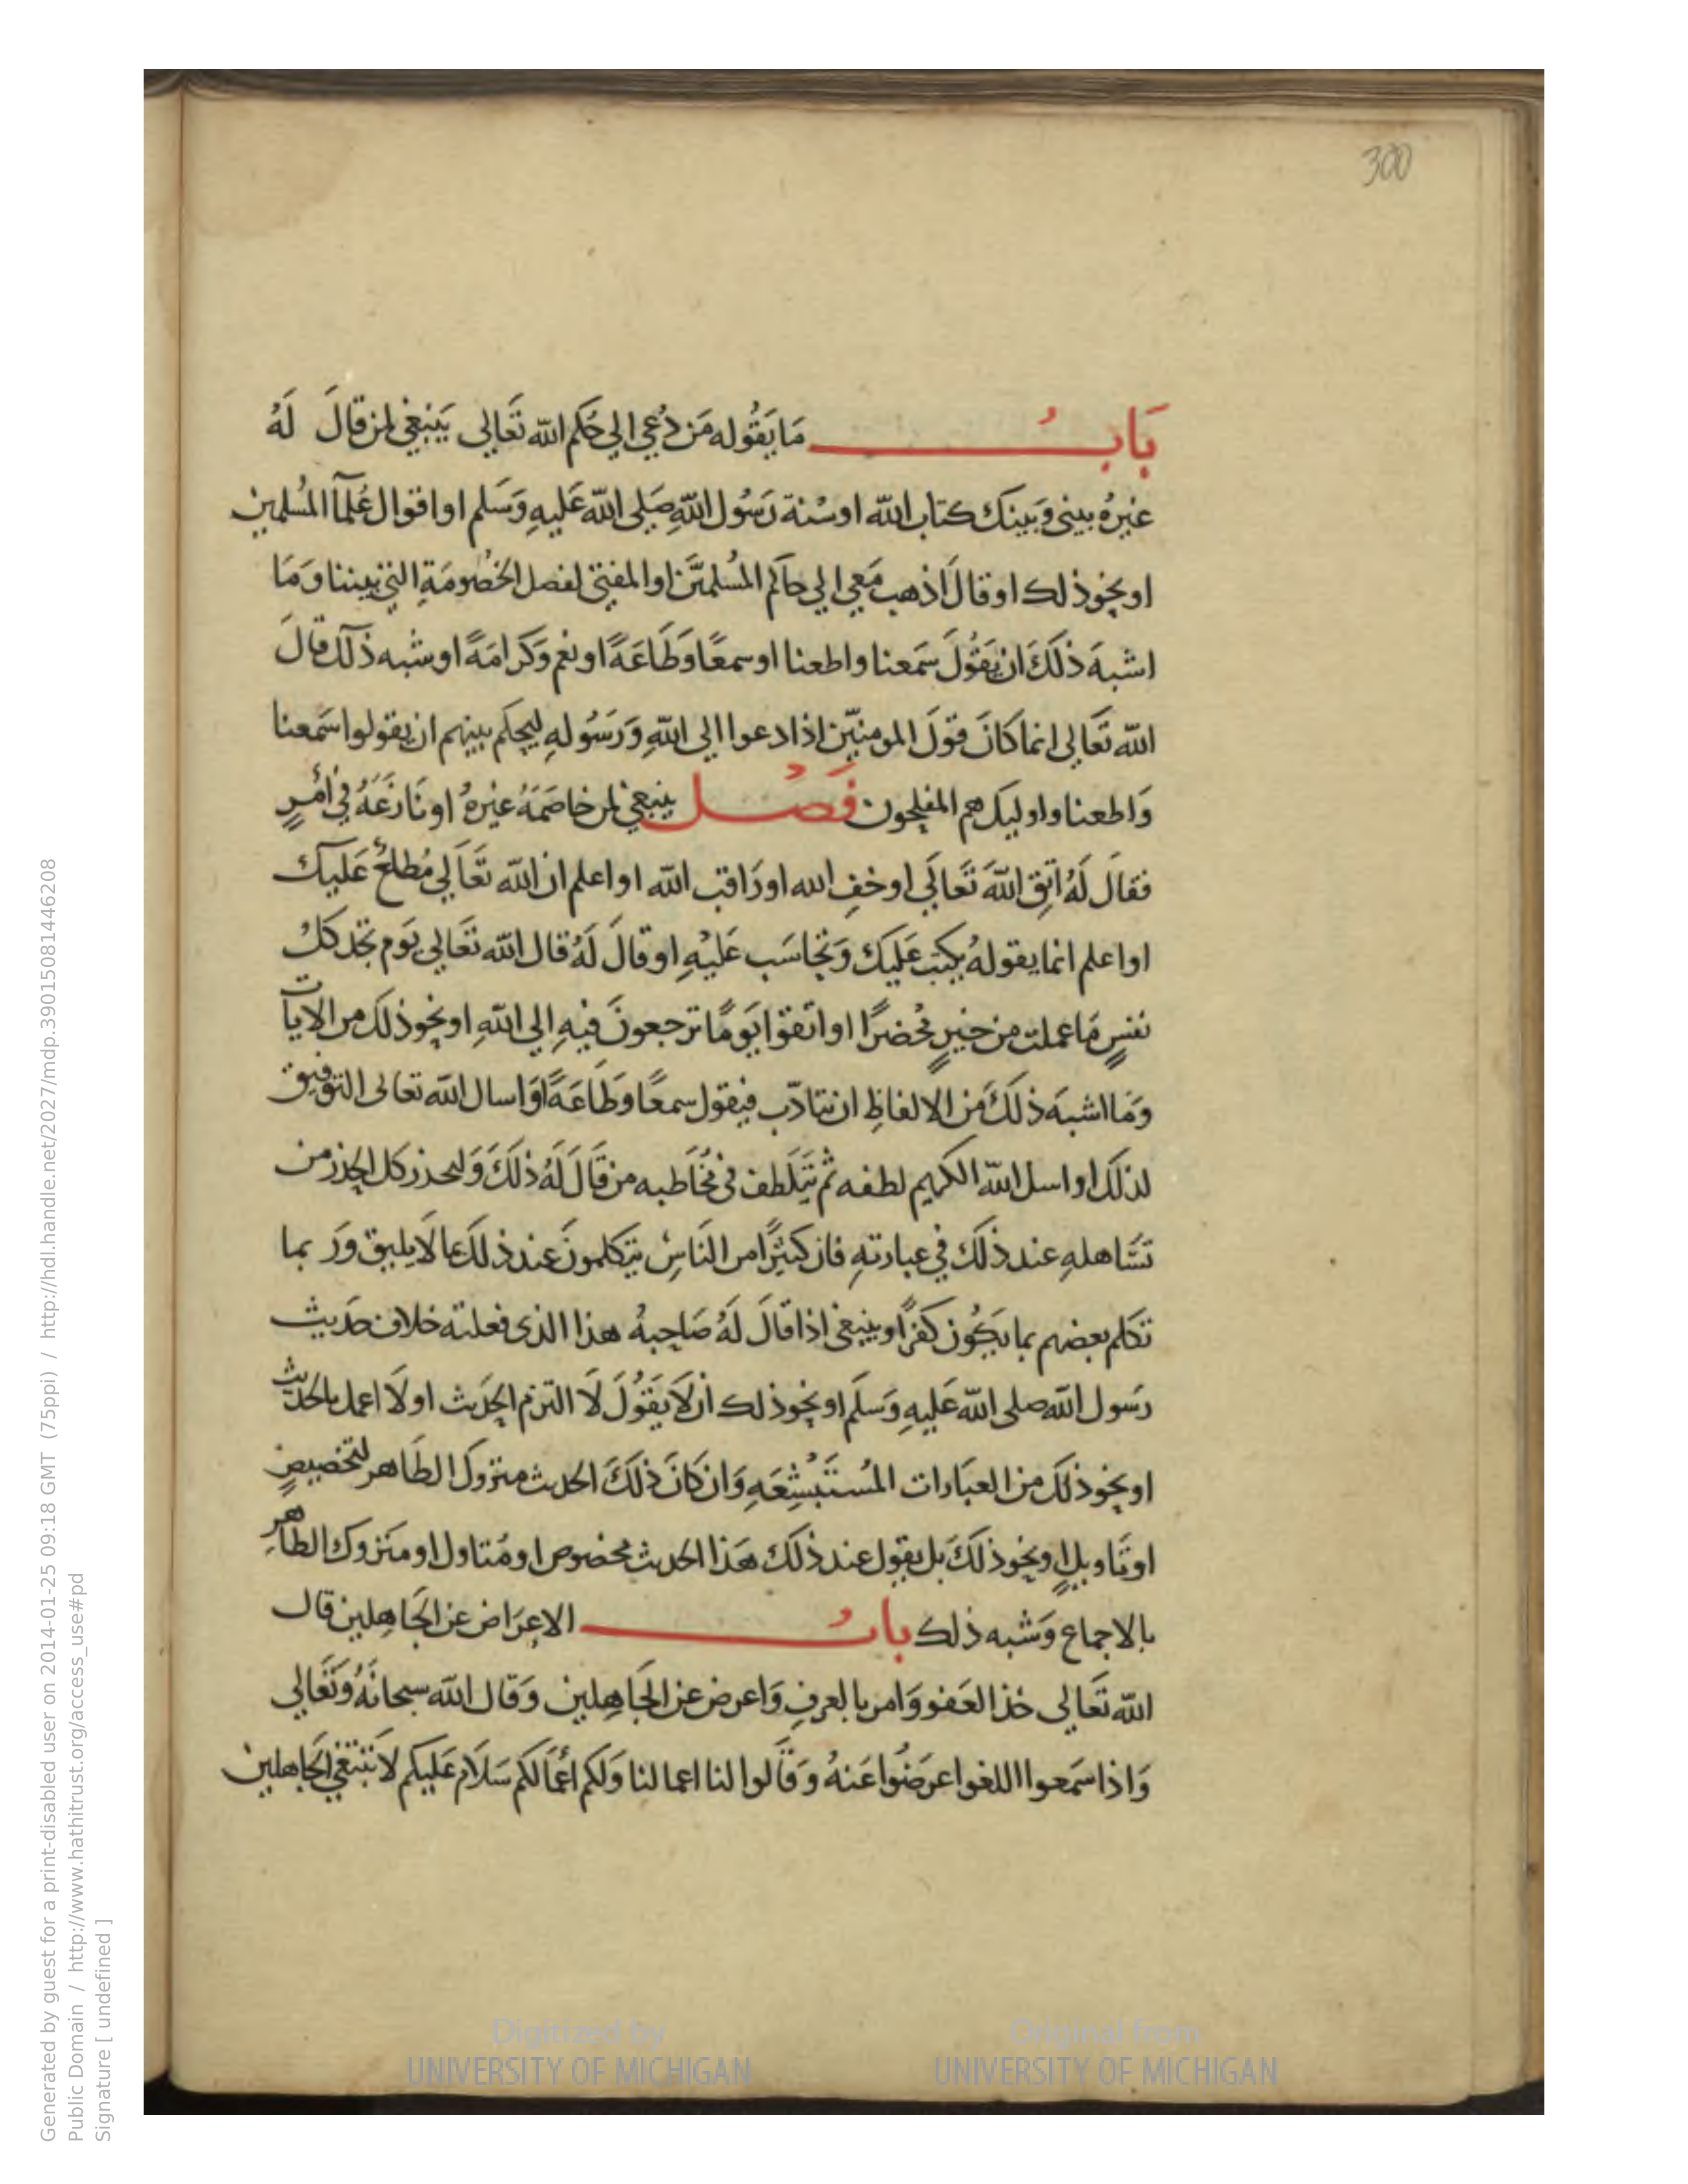 300
بَابُ مَا يَقُوله مَن دُعِي الي حُكم الله تَعَالى يَنبَغي لمن قالَ لَهُ
غيرهُ بيني وَبينَك كتاب الله او سُنة رَسُول اللهِ صَلى الله عَليهِ وَسَلم او اقوال عُلمآ المُسلمين
او نحو ذلك او قالَ اذهب مَعي الي حاكم المُسلميَّن او المفتي لفصل الخصُومَةِ التي بيننا وَمَا
اشبهَ ذلكَ ان يَقُولَ سَمعنا واطعنا او سمعًا وَطَاعَةً او نعم وَكرامَةً او شبه ذلك قالَ
الله تَعَالى انما كَانَ قولَ المومنيّن اذا دعوا الى اللهِ وَرَسُولهِ ليحكم بينهم ان يقولوا سَمعنا
وَاطعنا واوليك هم المفلحون فَصْل ينبغي لمن خاصَمَهُ غيرهُ او نَازعَهُ في أمْرٍ
فقالَ لَهُ اتقِ اللهَ تَعَالَي او خفِ الله او رَاقب الله او اعلم ان الله تَعَالي مُطلعٌ عَليك
او اعلم انما يقولهُ يكتب عَليكَ وَتحاسَب عَليْهِ او قالَ لَهُ قال الله تعَالي يَوم تجد كلُ
نفسٍ مَا عملت من خيرٍ مُحضرًا او اتقوا يَومًا ترجعونَ فيهِ الي اللهِ او نحو ذلك من الايات
وَمَا اشبهَ ذلكَ مَن الالفاظِ ان يتادّب فيقول سمعًا وَطَاعَةً او اسال الله تعالى التوفيق
لذلك او اسل الله الكريم لطفه ثم يَتلَطف في مخاطبه من قَالَ لَهُ ذلكَ وَليحذر كل الحذر من
تسَاهلهِ عند ذلكَ في عبارتهِ فان كثيرًا من النَاسِ يتكلمونَ عند ذلك بما لَا يليق وَربما
تكلم بعضهم بما يَكُون كفرًا وينبغي اذا قَالَ لَهُ صَاحِبهُ هذا الذى فعلته خلاف حَديث
رَسول الله صلى الله عَليهِ وَسَلَم او نحو ذلك ان لَا يَقُولَ لَا التزم الحَديث او لَا اعمل بالحَديث
او نحو ذلك من العبَارات المُستَبْشِعَةِ وَان كَانَ ذلكَ الحديث متروك الظَاهر لتخصيصٍ
او تَاويلٍ او نحو ذلكَ بل يقول عند ذلكَ هَذا الحديث مخصوص او مُتاول او متروك الظاهرِ
بالاجماع وَشبه ذلك بابُ الاعرَاض عن الجَاهِلين قال
الله تَعَالى خذ العَفو وَامر بالعرفِ وَاعرض عن الجَاهِلين وَقال الله سبحانَهُ وَتَعَالي
وَاذا سَمعوا اللغو اعرَضُوا عَنهُ وَقَالوا لنا اعمالنا وَلكم أعمَالكم سَلَام عَليكم لا نَبتغي الجَاهلين
Digitized by
UNIVERSITY OF MICHIGAN
Original from
UNIVERSITY OF MICHIGAN
Generated by guest for a print-disabled user on 2014-01-25 09:18 GMT (75ppi) / http://hdl.handle.net/2027/mdp.39015081446208
Public Domain / http://www.hathitrust.org/access_use#pd
Signature [ undefined ]